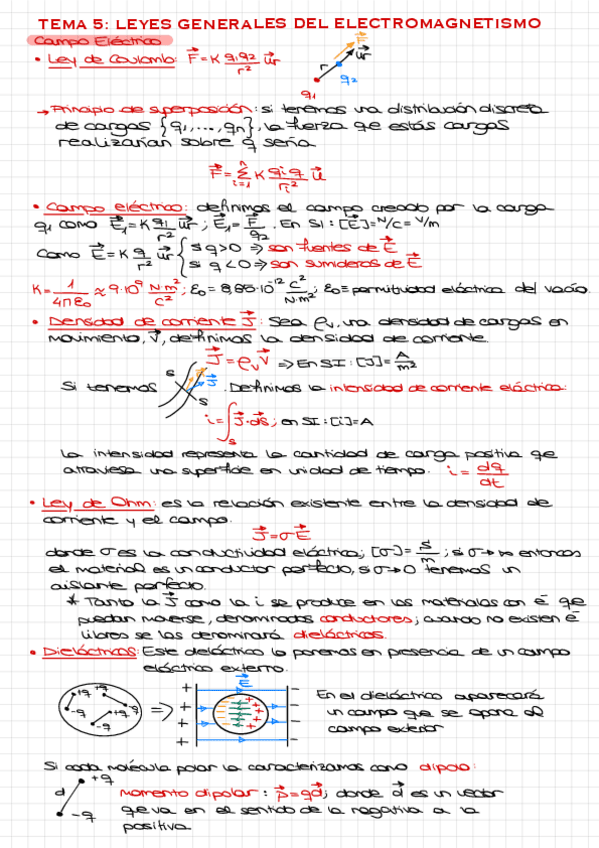 TEMA 5: LEYES GENERALES DEL ELECTROMAGNETISMO
Campo Eléctrico
• Ley de Coulomb: F⃗ = K q₁q₂/r² u⃗r
F⃗
u⃗r
r
q₂
q₁
→ Principio de superposición: si tenemos una distribución discreta
de cargas {q₁,...,qₙ}, la fuerza qe estas cargas
realizarían sobre q sería
F⃗ = Σⁿᵢ₌₁ K qᵢq/rᵢ² u⃗
• Campo eléctrico: definimos el campo creado por la carga
q₁ como E⃗₁ = K q₁/r² u⃗r ; E⃗₁ = F⃗/q₂ . En SI: [E⃗] = N/C = V/m
Como E⃗ = K q/r² u⃗r { si q>0 ⇒ son fuentes de E⃗
si q<0 ⇒ son sumideros de E⃗
K = 1/4πε₀ ≈ 9·10⁹ N·m²/C² ; ε₀ = 8,85·10⁻¹² C²/N·m² ; ε₀ ≡ permitividad eléctrica del vacío.
• Densidad de corriente J⃗: Sea ρv, una densidad de cargas en
movimiento, v⃗, definimos la densidad de corriente.
J⃗ = ρv v⃗ ⇒ En SI: [J] = A/m²
Si tenemos S S J⃗ . Definimos la intensidad de corriente eléctrica:
i = ∫s J⃗·dS⃗ ; en SI: [i] = A
La intensidad representa la cantidad de carga positiva qe
atraviesa una superficie en unidad de tiempo. i = dq/dt
• Ley de Ohm: es la relación existente entre la densidad de
corriente y el campo.
J⃗ = σE⃗
donde σ es la conductividad eléctrica; [σ] = S/m ; si σ→∞ entonces
el material es un conductor perfecto, si σ→0 tenemos un
aislante perfecto.
* Tanto la J⃗ como la i se produce en los materiales con é qe
puedan moverse, denominados conductores; cuando no existen é
libres se les denominará dieléctricos.
• Dieléctricos: Este dieléctrico lo ponemos en presencia de un campo
eléctrico externo.
E⃗
+q +q -q +q -q -q ⇒ + + + + - - - -
En el dieléctrico aparecerá
un campo que se opone al
campo exterior
Si cada molécula polar la caracterizamos como dipolo:
+q
d
-q
momento dipolar: p⃗ = qd⃗; donde d⃗ es un vector
qe va en el sentido de la negativa a la
positiva